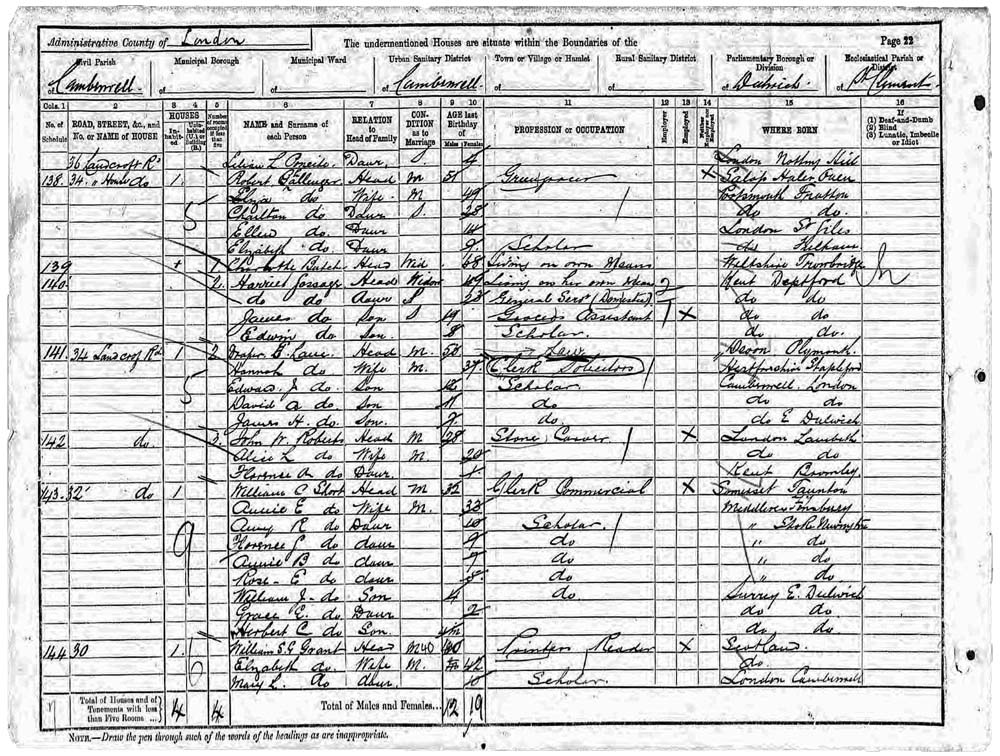 Administrative County of London The undermentioned Houses are situate within the Boundaries of the Page 22
Civil Parish Municipal Borough Municipal Ward Urban Sanitary District Town or Village or Hamlet Rural Sanitary District Parliamentary Borough or Division Ecclesiastical Parish or District
of Camberwell of of of Camberwell of of of Dulwich of St Clements
Cols. 1 2 3 4 5 6 7 8 9 10 11 12 13 14 15 16
No. of Schedule ROAD, STREET, &c., and No. or NAME of HOUSE HOUSES Inhabited Uninhabited (U.) or Building (B.) Number of rooms occupied if less than five NAME and Surname of each Person RELATION to Head of Family CONDITION as to Marriage AGE last Birthday of Males Females PROFESSION or OCCUPATION Employer Employed Neither Employer nor Employed WHERE BORN (1) Deaf-and-Dumb (2) Blind (3) Lunatic, Imbecile or Idiot
36 Landcroft Rd Lilian L Daur S. 4 London Notting Hill
138. 34 do 1. Robert Head M 51 Greengrocer X Salop Hales Owen
Eliza do Wife M 49 Portsmouth Fratton
do Daur S. 28 do do.
Ellen do Daur 14 London St Giles
Elizabeth do Daur 9. Scholar do
139 Head Wid 68 Living on own Means Wiltshire Trowbridge
140 2. Harriet Gossage Head Widow Living on her own Means Kent Deptford
do do Daur S 23 General Servt (Domestic) do do
James do Son S 19 Grocers Assistant X do do
Edwin do Son. 8 Scholar. do do.
141. 34 Landcroft Rd 1 2 Head M. 50 Law Devon Plymouth.
Hannah do Wife M. 37 Clerk Solicitors Hertfordshire Stapleford
Edward J. do Son 12 Scholar Camberwell London
David A do. Son 11 do do do
James H. do Son. 7. do. do E Dulwich
142 do. 3. John W. Roberts Head M 28 Stone Carver X London Lambeth
Alice L do Wife M 20 do do
Florence A. do Daur Kent Bromley
143. 32 do 1. William C Short Head M 32 Clerk Commercial X Somerset Taunton
Annie E do Wife M. 33 Middlesex Finsbury
Amy R do Daur 10 Scholar. " Stoke Newington
Florence do daur 9 do " do
Annie B do daur 7 do " do
Rose E do daur 5 do " do
William J. do Son 4 do Surrey E. Dulwich
Grace E. do. Daur 2 do do
Herbert C do Son. do do
144 30 1. William S G Grant Head M 40 Printers Reader X Scotland
Elizabeth do. Wife M. 42 do.
Mary L. do daur. 10 Scholar. London Camberwell
Total of Houses and of Tenements with less than Five Rooms ... 4 4 Total of Males and Females... 12 19
NOTE.—Draw the pen through such of the words of the headings as are inappropriate.